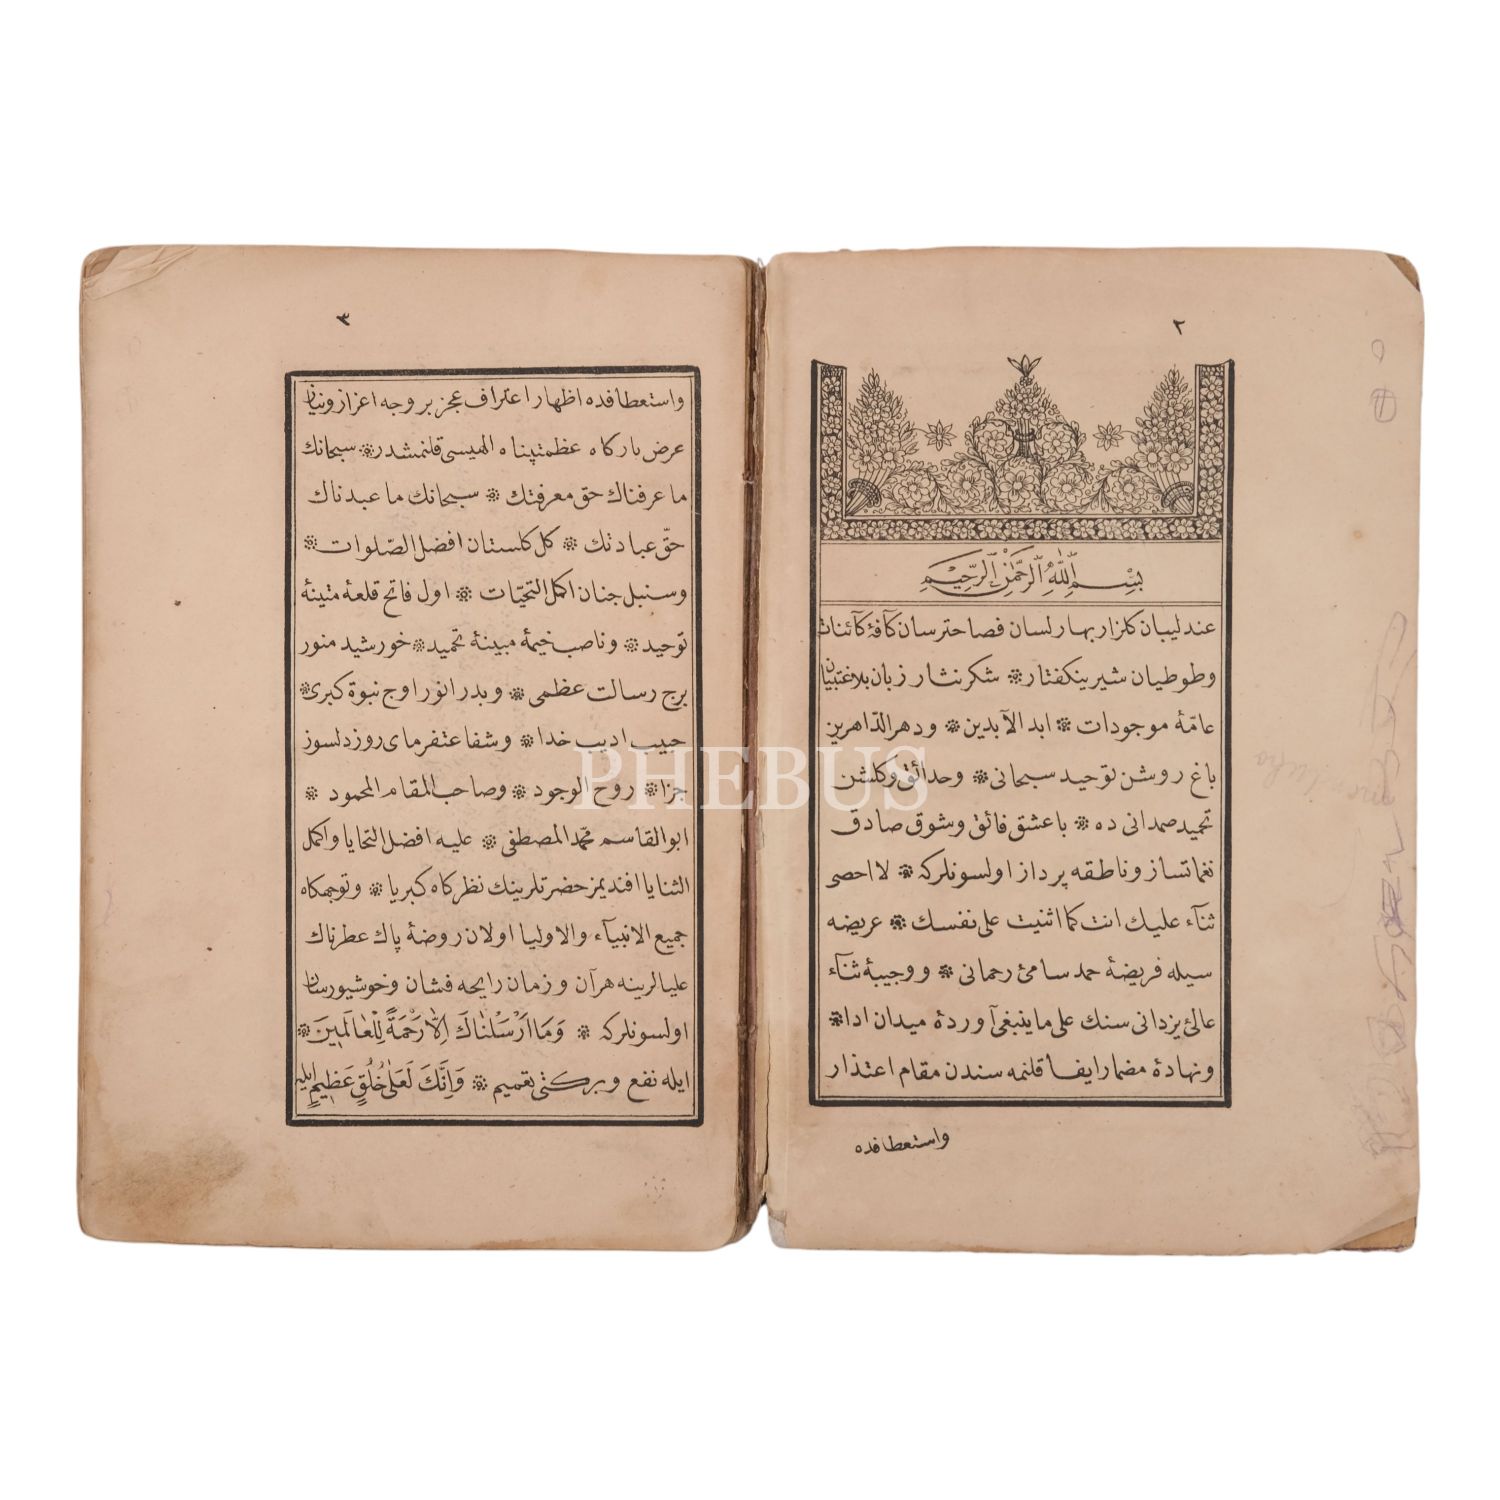 ٢
بِسْمِ اللّٰهِ الرَّحْمٰنِ الرَّحِيْمِ
عندليبان كلزار بهار لسان فصاحترسان كآفهٔ كآئنات
وطوطيان شيرينكفتار ❊ شكرنثار زبان بلاغتبيان
عامّهٔ موجودات ❊ ابد الآبدين ❊ ودهر الدّاهرين
باغ روشن توحيد سبحانى ❊ وحدائق وكلشن
تحميد صمدانى ده ❊ با عشق فائق وشوق صادق
نغماتساز وناطقه پرداز اولسونلركه ❊ لا احصى
ثنآء عليك انت كما اثنيت على نفسك ❊ عريضه
سيله فريضهٔ حمد سامئ رحمانى ❊ ووجيبهٔ ثنآء
عالئ يزدانى سنك على ما ينبغى آوردهٔ ميدان ادا ❊
ونهادهٔ مضمار ايفا قلنمه سندن مقام اعتذار
واستعطافده
٣
واستعطافده اظهار اعتراف عجز بر وجه اعزاز ونياز
عرض باركاه عظمتپناه الهيسى قلنمشدر ❊ سبحانك
ما عرفناك حق معرفتك ❊ سبحانك ما عبدناك
حقّ عبادتك ❊ كل كلستان افضل الصّلوات ❊
وسنبل جنان اكمل التحيّات ❊ اول فاتح قلعهٔ متينهٔ
توحيد ❊ وناصب خيمهٔ مبينهٔ تحميد ❊ خورشيد منور
برج رسالت عظمى ❊ وبدر انور اوج نبوة كبرى ❊
حبيب اديب خدا ❊ وشفاعتفرماى روز دلسوز
جزا ❊ روح الوجود ❊ وصاحب المقام المحمود ❊
ابو القاسم محمّد المصطفى ❊ عليه افضل التحايا واكمل
الثنايا افنديمز حضرتلرينك نظركاه كبريا ❊ وتوجهكاه
جميع الانبيآء والاوليا اولان روضهٔ پاك عطرناك
عليالرينه هر آن وزمان رايحه فشان وخوشبورسان
اولسونلركه ❊ وَمَا اَرْسَلْنَاكَ اِلَّا رَحْمَةً لِلْعَالَمِينَ ❊
ايله نفع وبركتى تعميم ❊ وَاِنَّكَ لَعَلٰى خُلُقٍ عَظِيمٍ ايله
PHEBUS